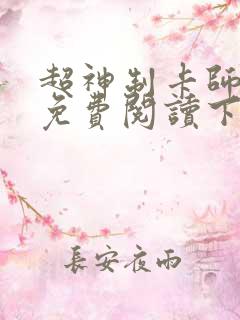 超神制卡師
免費閱讀下
長安夜雨